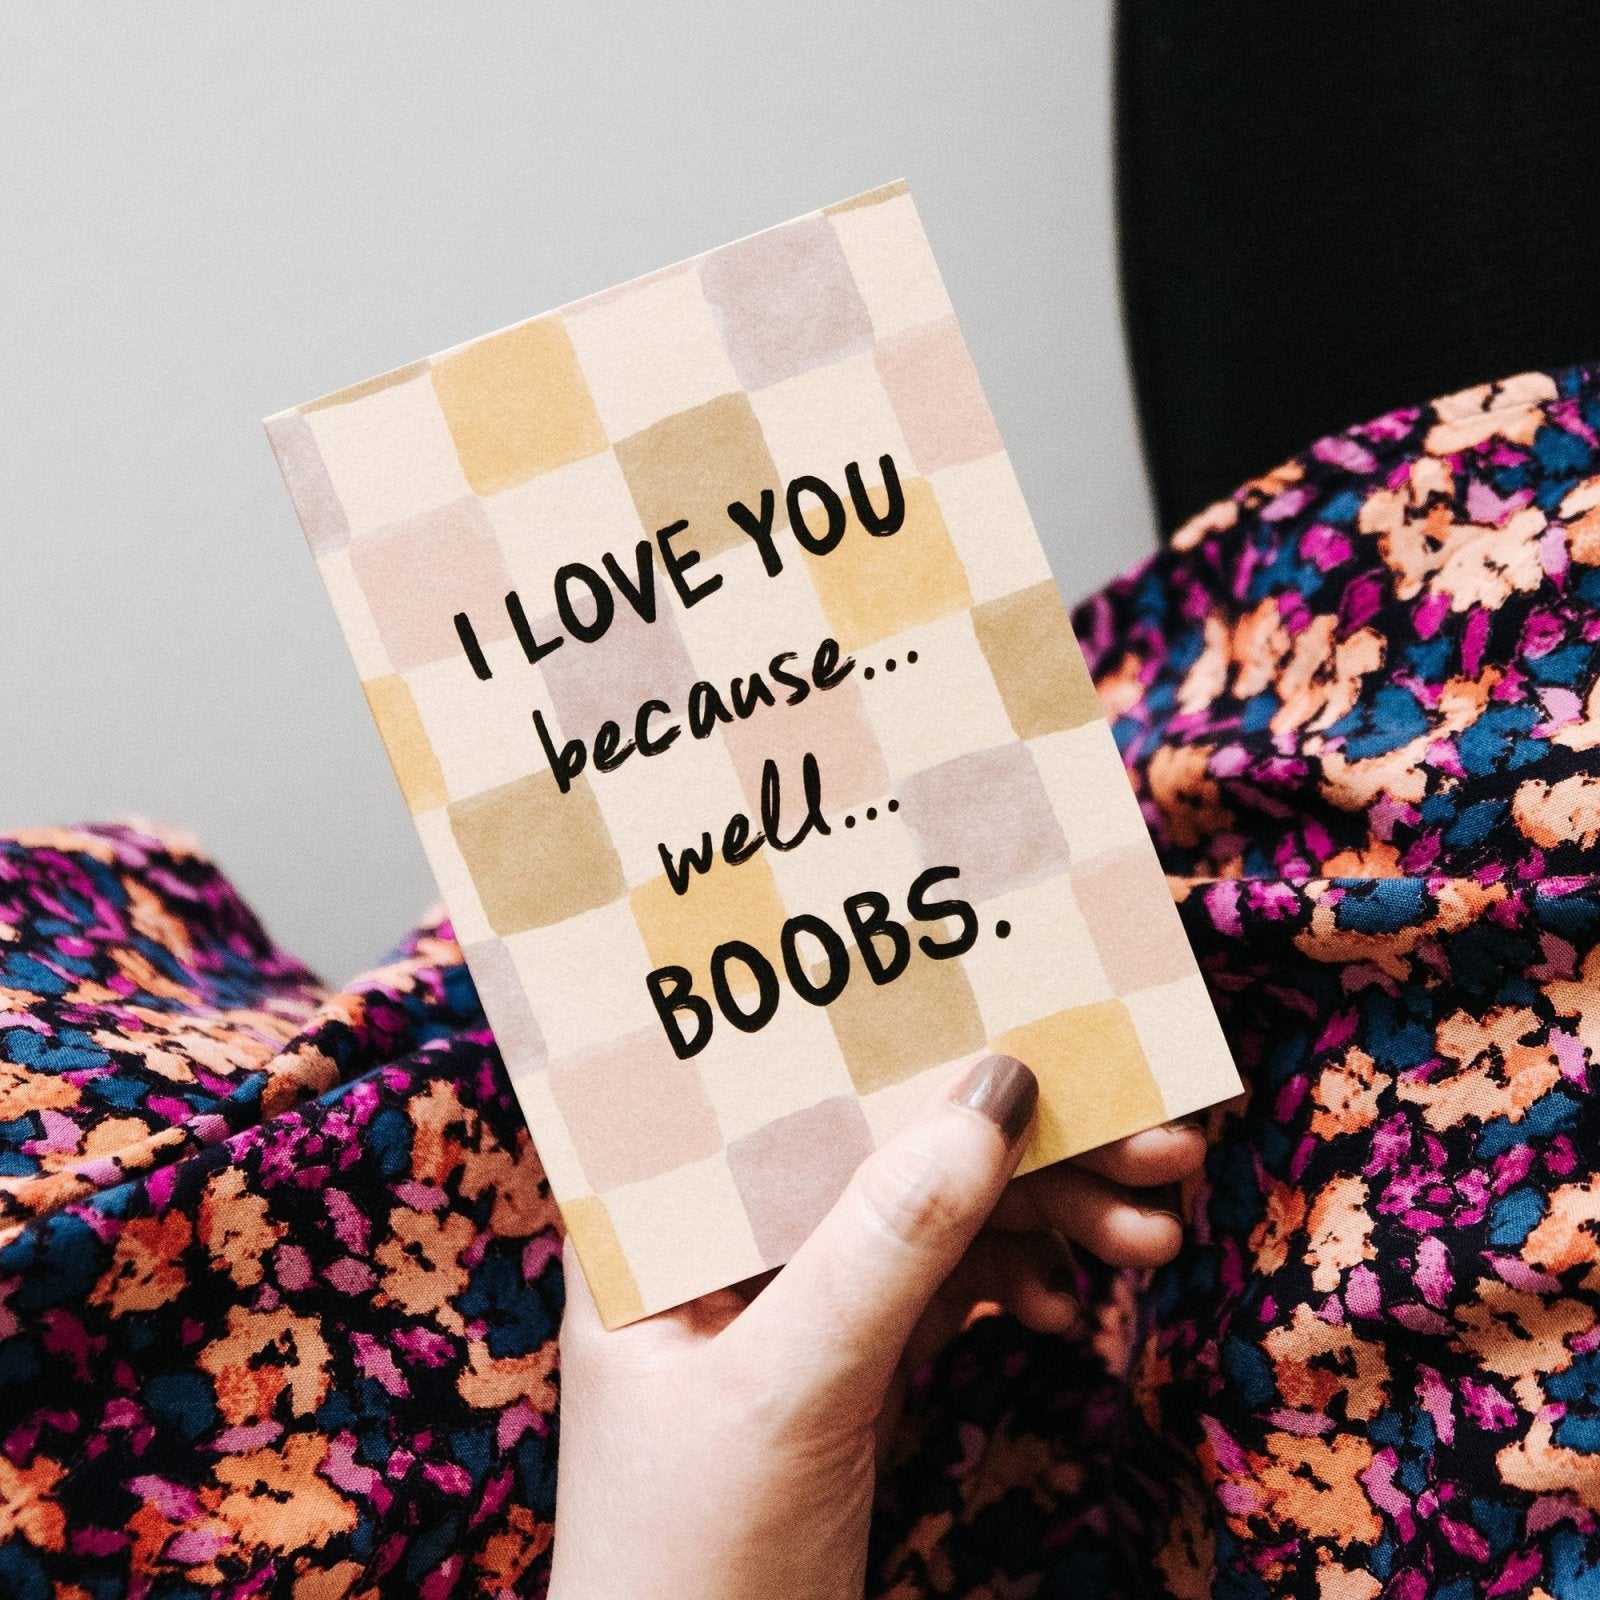 I LOVE YOU
because...
well...
BOOBS.